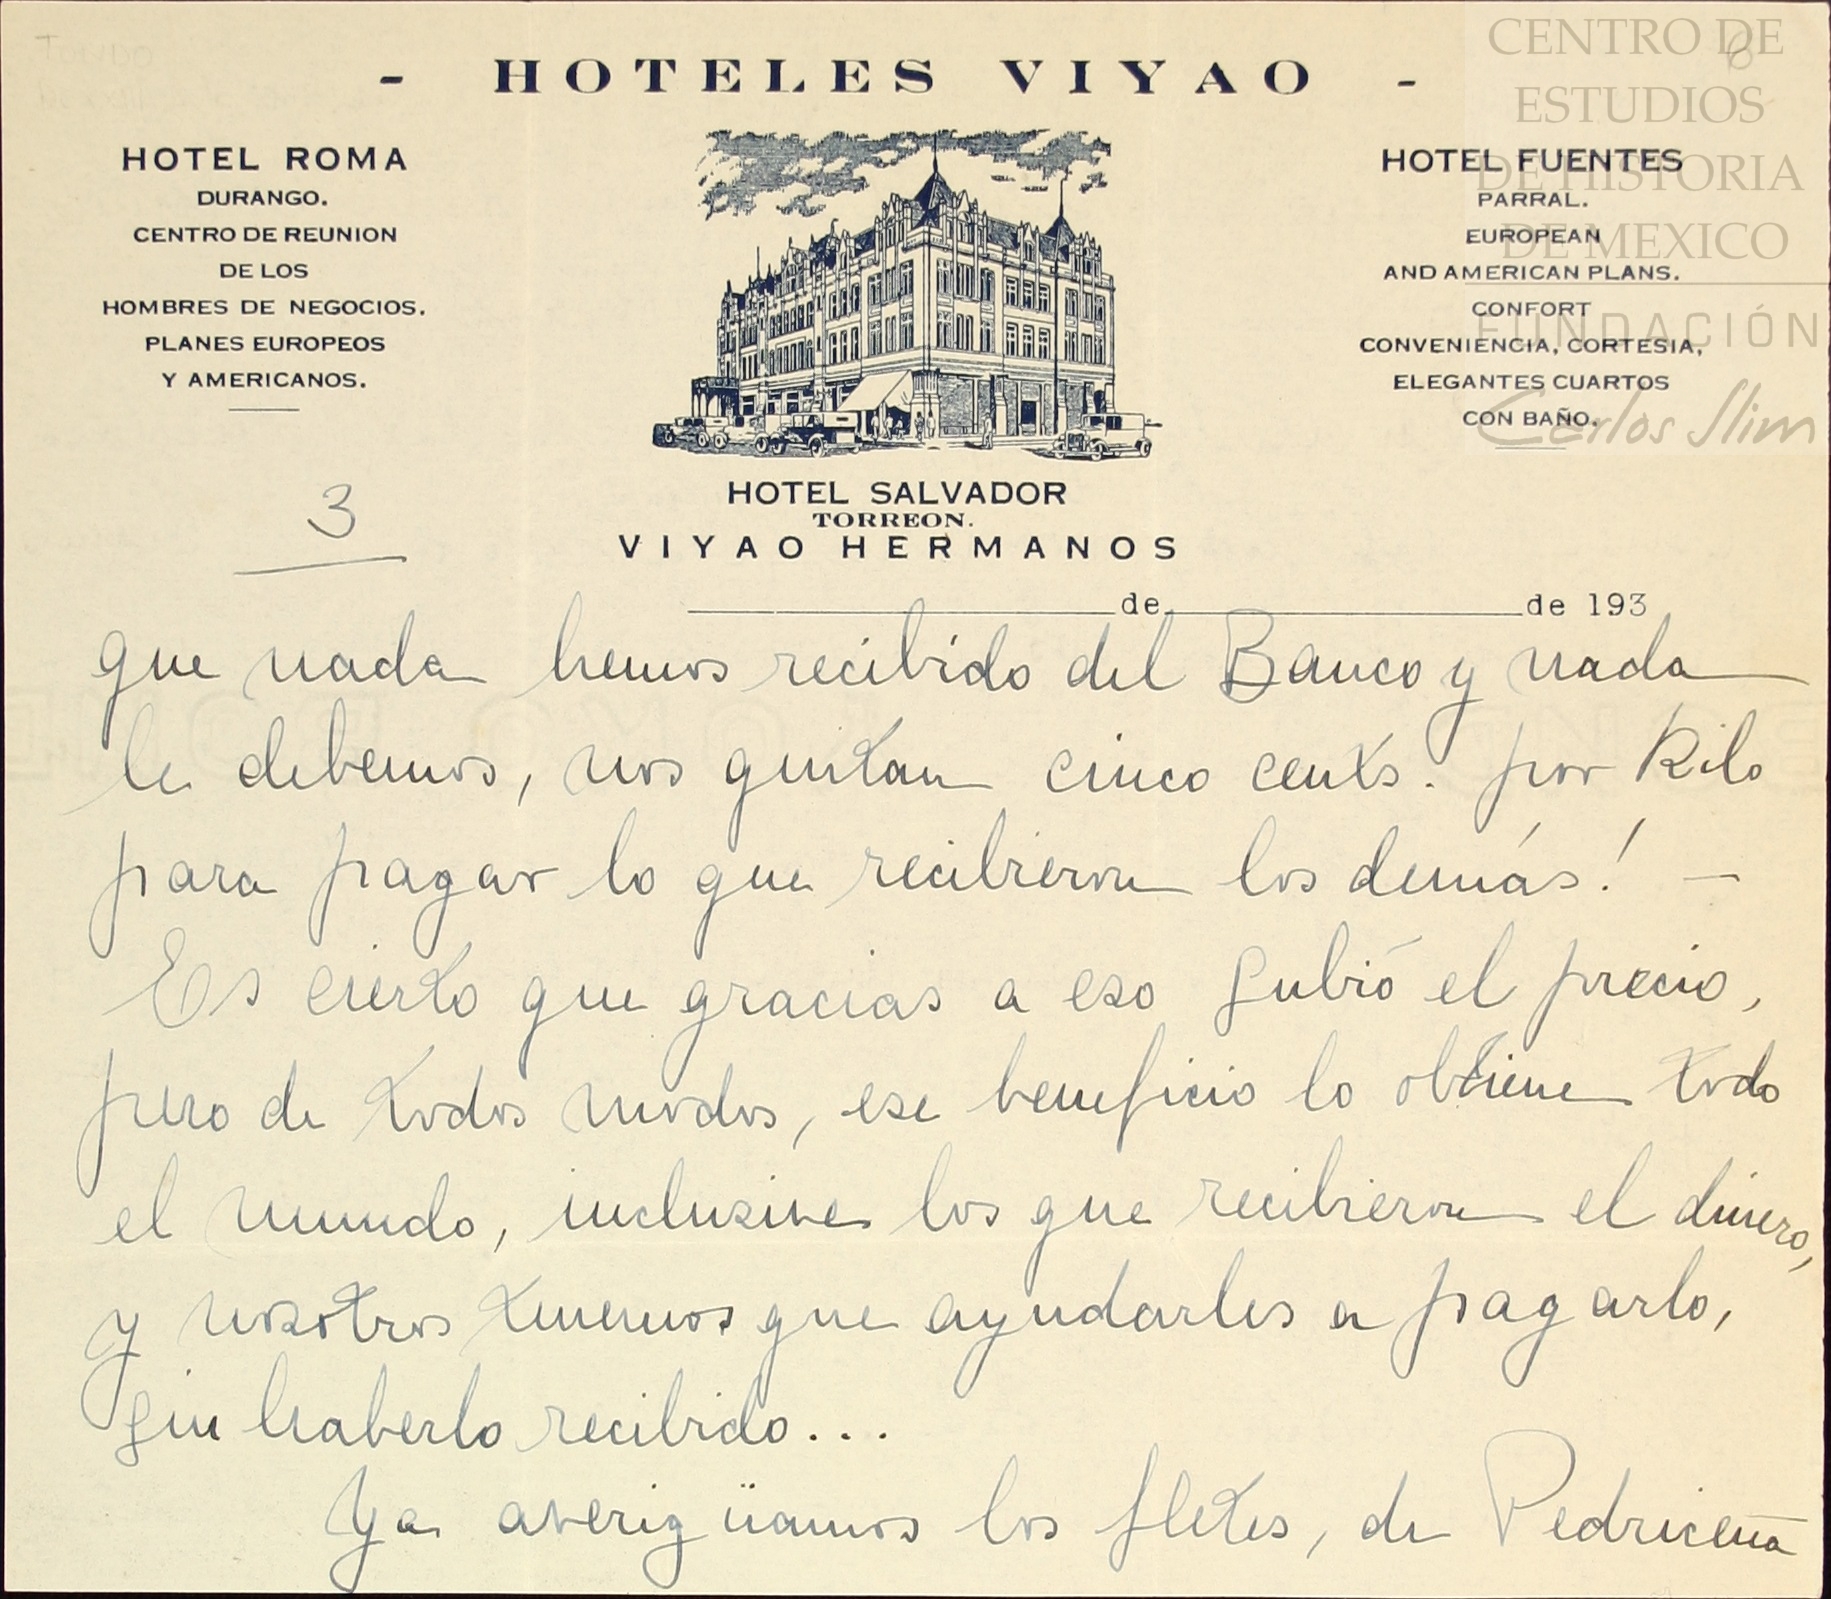 - HOTELES VIYAO -
HOTEL ROMA
DURANGO.
CENTRO DE REUNION
DE LOS
HOMBRES DE NEGOCIOS.
PLANES EUROPEOS
Y AMERICANOS.
HOTEL FUENTES
PARRAL.
EUROPEAN
AND AMERICAN PLANS.
CONFORT
CONVENIENCIA, CORTESIA,
ELEGANTES CUARTOS
CON BAÑO.
CENTRO DE
ESTUDIOS
DE HISTORIA
DE MEXICO
FUNDACIÓN
Carlos Slim
HOTEL SALVADOR
TORREON.
VIYAO HERMANOS
3
de de 193
que nada hemos recibido del Banco y nada
le debemos, nos quitan cinco cents. por Kilo
para pagar lo que recibieron los demás! —
Es cierto que gracias a eso subió el precio,
pero de todos modos, ese beneficio lo obtiene todo
el mundo, inclusive los que recibieron el dinero,
y nosotros tenemos que ayudarles a pagarlo,
sin haberlo recibido...
Ya averigüamos los fletes, de Pedriceña